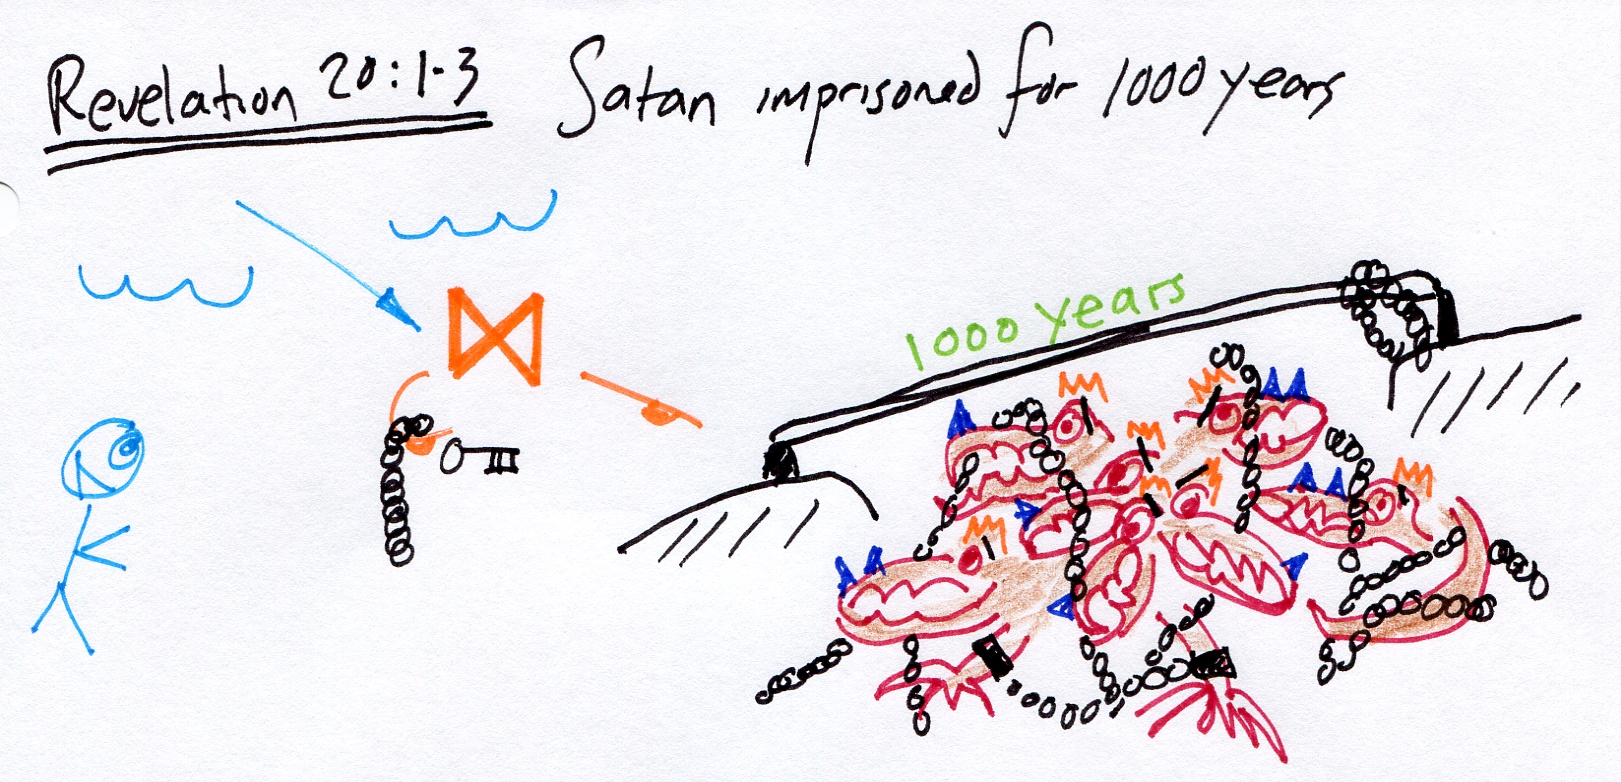 Revelation 20:1-3 Satan imprisoned for 1000 years
1000 years